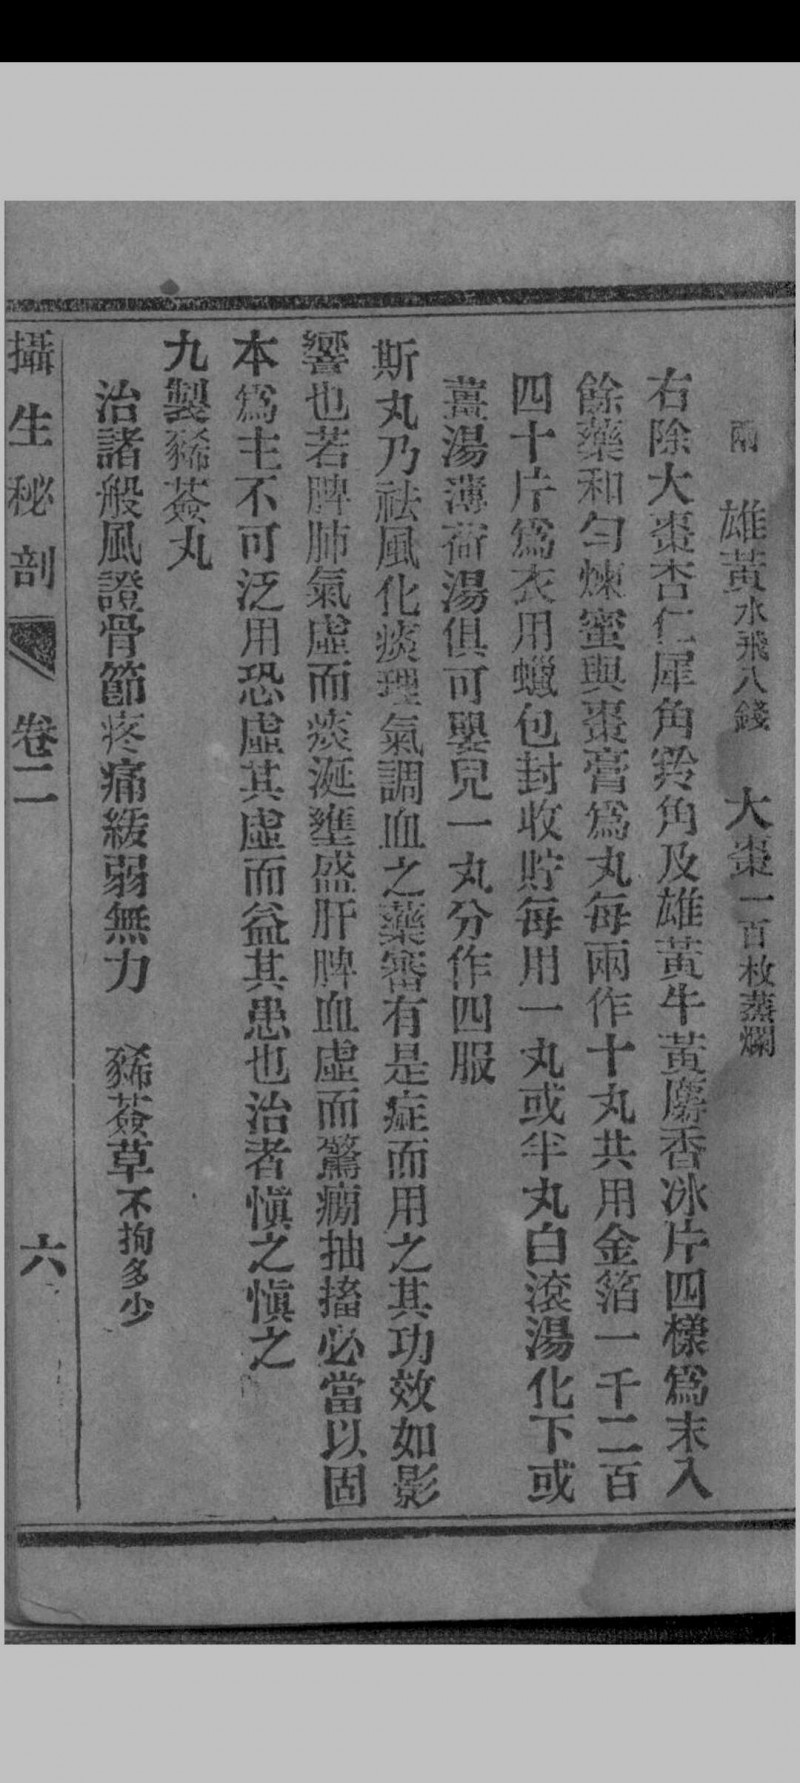 兩　雄黃水飛八錢　大棗一百枚蒸爛
右除大棗杏仁犀角羚角及雄黃牛黃麝香冰片四樣爲末入
餘藥和勻煉蜜與棗膏爲丸每兩作十丸共用金箔一千二百
四十片爲衣用蠟包封收貯每用一丸或半丸白滾湯化下或
薑湯薄荷湯俱可嬰兒一丸分作四服
斯丸乃祛風化痰理氣調血之藥審有是症而用之其功效如影
響也若脾肺氣虛而痰涎壅盛肝脾血虛而驚癇抽搐必當以固
本爲主不可泛用恐虛其虛而益其患也治者愼之愼之
九製豨薟丸
治諸般風證骨節疼痛緩弱無力　豨薟草不拘多少
攝生秘剖　卷二　六